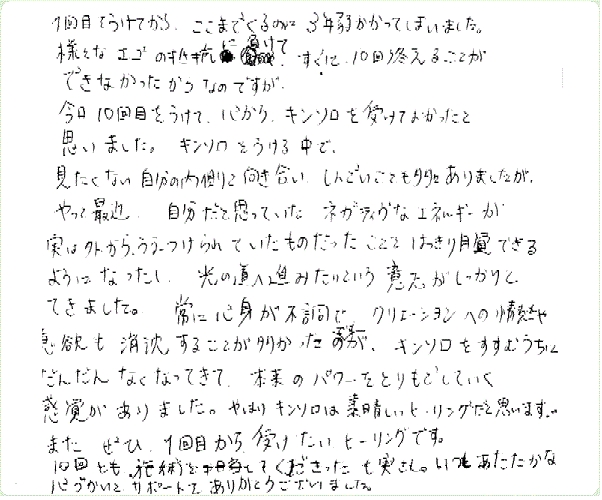 1回目をうけてから、ここまでくるのに3年弱かかってしまいました。
様々なエゴの抵抗に負けて、すぐに10回終えることが
できなかったからなのですが、
今日10回目をうけて、心から、キンソロを受けてよかったと
思いました。キンソロをうける中で、
見たくない自分の内側と向き合い、しんどいことも多々ありましたが、
やっと最近、自分だと思っていたネガティヴなエネルギーが
実は外から、うえつけられていたものだったことを はっきり自覚できる
ようになったし、光の道へ進みたいという意志がしっかりと
できました。常に心身が不調で、クリエーションへの情熱や
意欲も消沈することが多かったのですが、キンソロをすすむうちに
だんだんなくなってきて、本来のパワーをとりもどしていく
感覚がありました。やはりキンソロは素晴しいヒーリングだと思います。
また ぜひ、1回目から受けたいヒーリングです。
10回とも、施術を してくださった 実さん。いつもあたたかな
心づかいとサポートを ありがとうございました。